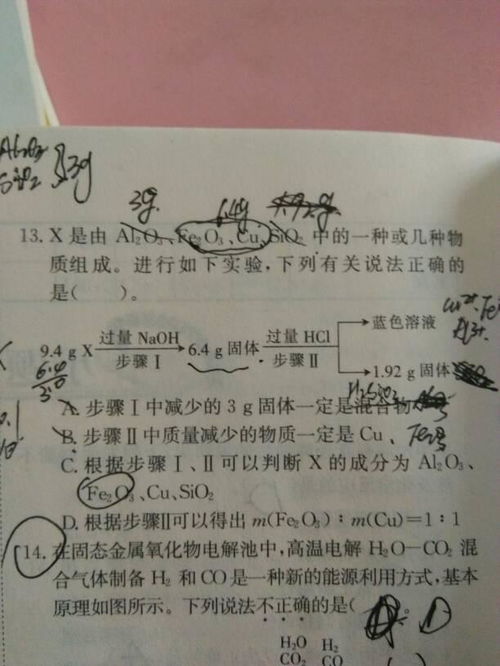 3g 6.4g 1.92g
13. X 是由 Al₂O₃、Fe₂O₃、Cu、SiO₂ 中的一种或几种物
质组成。进行如下实验,下列有关说法正确的
是(  )。
9.4 g X 过量 NaOH 步骤Ⅰ 6.4 g 固体 过量 HCl 步骤Ⅱ
蓝色溶液
1.92 g 固体
6.4
3.0
H₂SiO₃
A. 步骤Ⅰ中减少的 3 g 固体一定是混合物
B. 步骤Ⅱ中质量减少的物质一定是 Cu
C. 根据步骤Ⅰ、Ⅱ可以判断 X 的成分为 Al₂O₃、
Fe₂O₃、Cu、SiO₂
D. 根据步骤Ⅱ可以得出 m(Fe₂O₃)∶m(Cu)=1∶1
14. 在固态金属氧化物电解池中,高温电解 H₂O—CO₂ 混
合气体制备 H₂ 和 CO 是一种新的能源利用方式,基本
原理如图所示。下列说法不正确的是( D
H₂O H₂
CO₂ CO